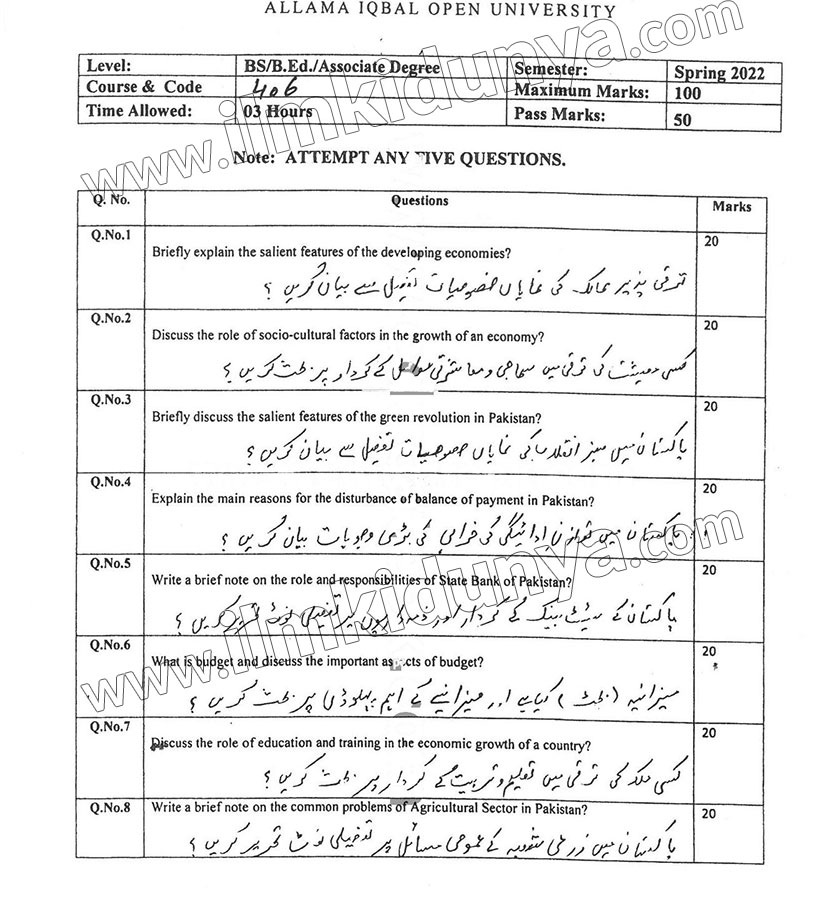 ALLAMA IQBAL OPEN UNIVERSITY
Level: BS/B.Ed./Associate Degree Semester: Spring 2022
Course & Code 406 Maximum Marks: 100
Time Allowed: 03 Hours Pass Marks: 50
Note: ATTEMPT ANY FIVE QUESTIONS.
Q. No. Questions Marks
Q.No.1 Briefly explain the salient features of the developing economies? 20
ترقی پذیر ممالک کی نمایاں خصوصیات تفصیل سے بیان کریں ؟
Q.No.2 Discuss the role of socio-cultural factors in the growth of an economy? 20
کسی معیشت کی ترقی میں سماجی و معاشرتی عوامل کے کردار پر بحث کریں ؟
Q.No.3 Briefly discuss the salient features of the green revolution in Pakistan? 20
پاکستان میں سبز انقلاب کی نمایاں خصوصیات تفصیل سے بیان کریں ؟
Q.No.4 Explain the main reasons for the disturbance of balance of payment in Pakistan? 20
پاکستان میں توازن ادائیگی کی خرابی کی بڑی وجوہات بیان کریں ؟
Q.No.5 Write a brief note on the role and responsibilities of State Bank of Pakistan? 20
پاکستان کے سٹیٹ بینک کے کردار اور ذمہ داریوں پر تفصیلی نوٹ تحریر کریں ؟
Q.No.6 What is budget and discuss the important aspects of budget? 20
میزانیہ (بجٹ) کیا ہے اور میزانیے کے اہم پہلوؤں پر بحث کریں ؟
Q.No.7 Discuss the role of education and training in the economic growth of a country? 20
کسی ملک کی ترقی میں تعلیم و تربیت کے کردار پر بحث کریں ؟
Q.No.8 Write a brief note on the common problems of Agricultural Sector in Pakistan? 20
پاکستان میں زرعی شعبہ کے عمومی مسائل پر تفصیلی نوٹ تحریر کریں ؟
www.ilmkidunya.com
www.ilmkidunya.com